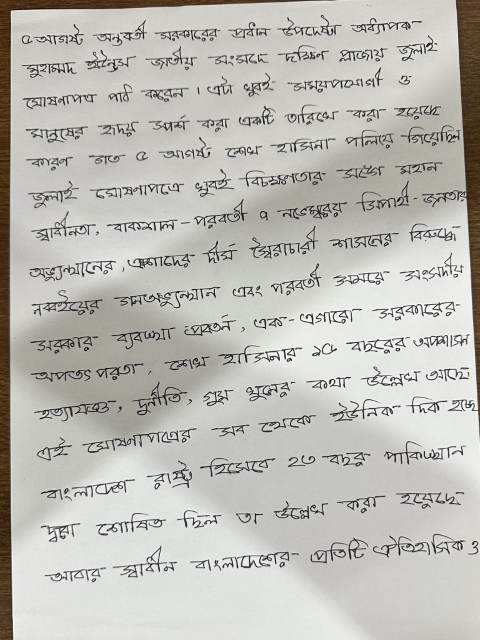 ৫ আগস্ট অন্তবর্তী সরকারের প্রধান উপদেষ্টা অধ্যাপক
মুহাম্মদ ইউনুস জাতীয় সংসদে দক্ষিন প্লাজায় জুলাই
ঘোষণাপত্র পাঠ করেন। এটা খুবই সময়পযোগী ও
মানুষের হৃদয় স্পর্শ করা একটি তারিখে করা হয়েছে
কারণ গত ৫ আগস্ট শেখ হাসিনা পালিয়ে গিয়েছিল
জুলাই ঘোষণাপত্রে খুবই বিচক্ষণতার সঙ্গে মহান
স্বাধীনতা, বাকশাল-পরবর্তী ৭ নভেম্বরের সিপাহী-জনতার
অভ্যুত্থানের, এরশাদের দীর্ঘ স্বৈরাচারী শাসনের বিরুদ্ধে
নব্বইয়ের গনঅভ্যুত্থান এবং পরবর্তী সময়ে সংসদীয়
সরকার ব্যবস্থা প্রবর্তন, এক-এগারো সরকারের
অপতৎপরতা, শেখ হাসিনার ১৫ বছরের অপশাসন
হত্যাযজ্ঞ, দুর্নীতি, গুম খুনের কথা উল্লেখ আছে
এই ঘোষণাপত্রের সব থেকে ইউনিক দিক হচ্ছে
বাংলাদেশ রাষ্ট্র হিসেবে ২৩ বছর পাকিস্থান
দ্বারা শোষিত ছিল তা উল্লেখ করা হয়েছে
আবার স্বাধীন বাংলাদেশের প্রতিটি ঐতিহাসিক ও